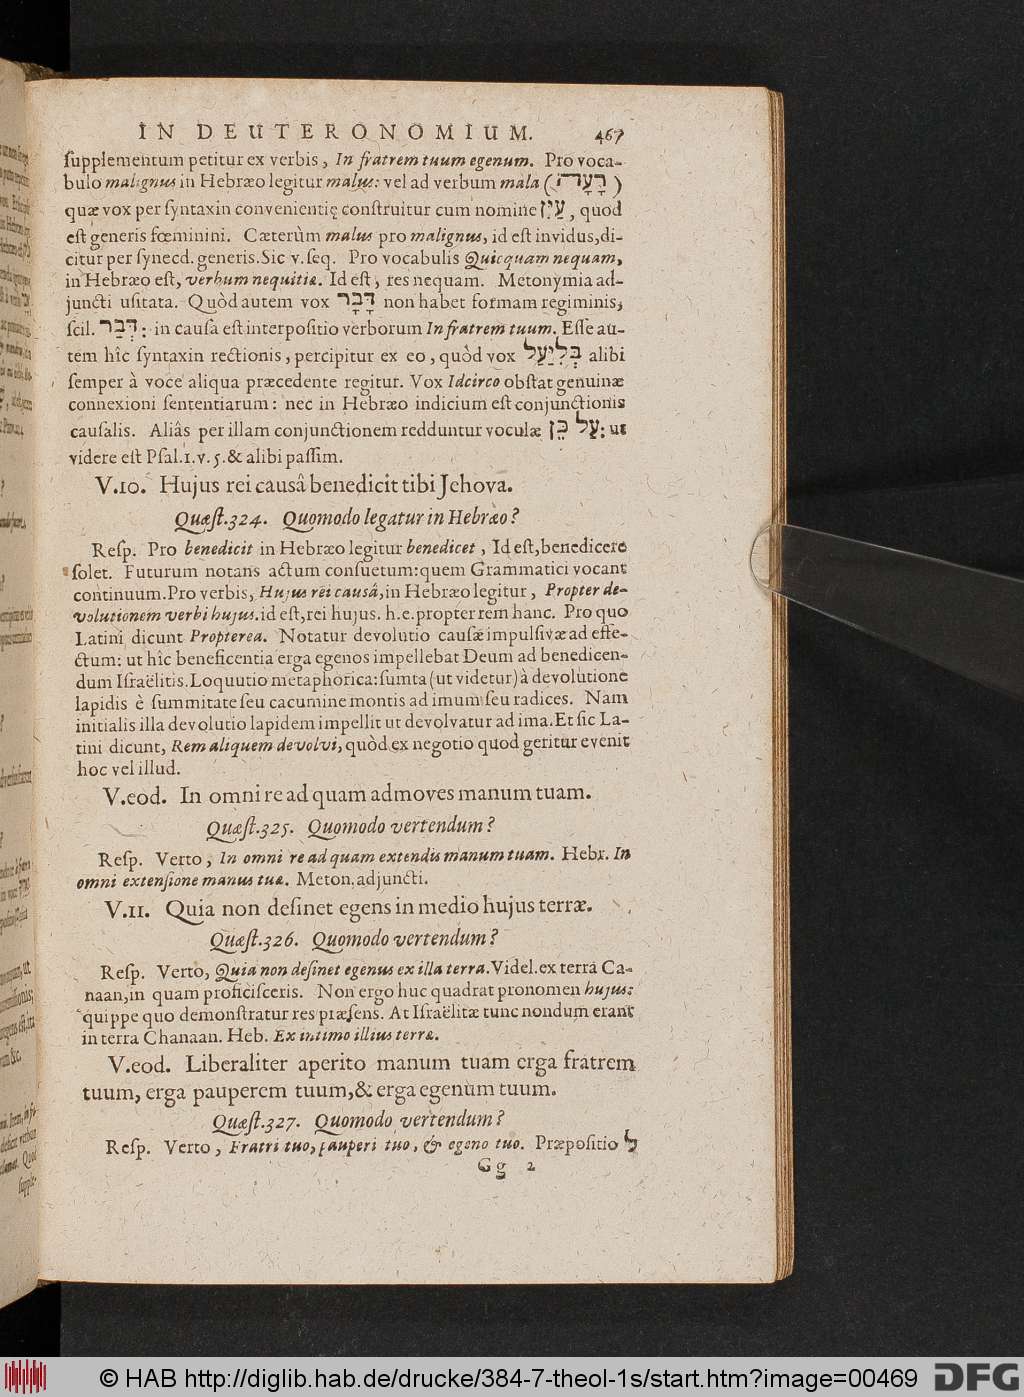 IN DEUTERONOMIUM. 467
supplementum petitur ex verbis, In fratrem tuum egenum. Pro voca-
bulo malignus in Hebræo legitur malus: vel ad verbum mala (רָעָה)
quæ vox per syntaxin convenientię construitur cum nomine עַיִן, quod
est generis fœminini. Cæterùm malus pro malignus, id est invidus, di-
citur per synecd. generis. Sic v. seq. Pro vocabulis Quicquam nequam,
in Hebræo est, verbum nequitiæ. Id est, res nequam. Metonymia ad-
juncti usitata. Quòd autem vox דָּבָר non habet formam regiminis,
scil. דְּבַר: in causa est interpositio verborum In fratrem tuum. Esse au-
tem hîc syntaxin rectionis, percipitur ex eo, quòd vox בְּלִיַּעַל alibi
semper à voce aliqua præcedente regitur. Vox Idcirco obstat genuinæ
connexioni sententiarum: nec in Hebræo indicium est conjunctionis
causalis. Aliâs per illam conjunctionem redduntur voculæ עַל כֵּן: ut
videre est Psal.1.v.5.& alibi passim.
V.10. Hujus rei causâ benedicit tibi Jehova.
Quæst.324. Quomodo legatur in Hebræo?
Resp. Pro benedicit in Hebræo legitur benedicet, Id est, benedicere
solet. Futurum notans actum consuetum: quem Grammatici vocant
continuum. Pro verbis, Hujus rei causâ, in Hebræo legitur, Propter de-
volutionem verbi hujus. id est, rei hujus. h.e. propter rem hanc. Pro quo
Latini dicunt Propterea. Notatur devolutio causæ impulsivæ ad effe-
ctum: ut hîc beneficentia erga egenos impellebat Deum ad benedicen-
dum Israëlitis. Loquutio metaphorica: sumta (ut videtur) à devolutione
lapidis è summitate seu cacumine montis ad imum seu radices. Nam
initialis illa devolutio lapidem impellit ut devolvatur ad ima. Et sic La-
tini dicunt, Rem aliquem devolvi, quòd ex negotio quod geritur evenit
hoc vel illud.
V.eod. In omni re ad quam admoves manum tuam.
Quæst.325. Quomodo vertendum?
Resp. Verto, In omni re ad quam extendis manum tuam. Hebr. In
omni extensione manus tuæ. Meton. adjuncti.
V.11. Quia non desinet egens in medio hujus terræ.
Quæst.326. Quomodo vertendum?
Resp. Verto, Quia non desinet egenus ex illa terra. Videl. ex terrâ Ca-
naan, in quam proficisceris. Non ergo huc quadrat pronomen hujus:
quippe quo demonstratur res præsens. At Israëlitæ tunc nondum erant
in terra Chanaan. Heb. Ex intimo illius terræ.
V.eod. Liberaliter aperito manum tuam erga fratrem
tuum, erga pauperem tuum, & erga egenum tuum.
Quæst.327. Quomodo vertendum?
Resp. Verto, Fratri tuo, pauperi tuo, & egeno tuo. Præpositio ל
Gg 2
© HAB http://diglib.hab.de/drucke/384-7-theol-1s/start.htm?image=00469
DFG